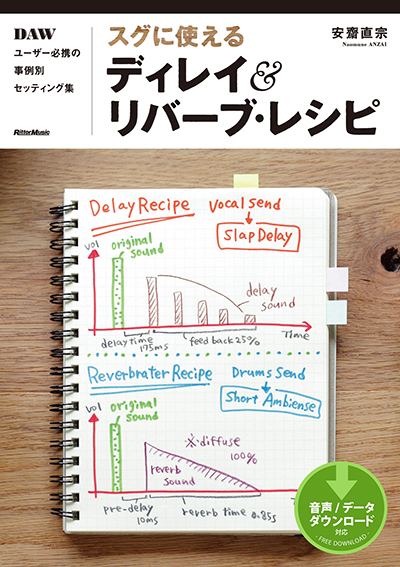 DAW
ユーザー必携の
事例別
セッティング集
RittorMusic
スグに使える
ディレイ&
リバーブ・レシピ
安齋直宗
Naomune ANZAI
Delay Recipe
Vocal Send
Slap Delay
vol
original
sound
delay
sound
delay time
175ms
feed back 25%
Time
Reverbrater Recipe
Drums Send
Short Ambiense
vol
original
sound
※diffuse
100%
reverb
sound
pre-delay
10ms
reverb time 0.85s
音声/データ
ダウンロード
対応
- FREE DOWNLOAD -